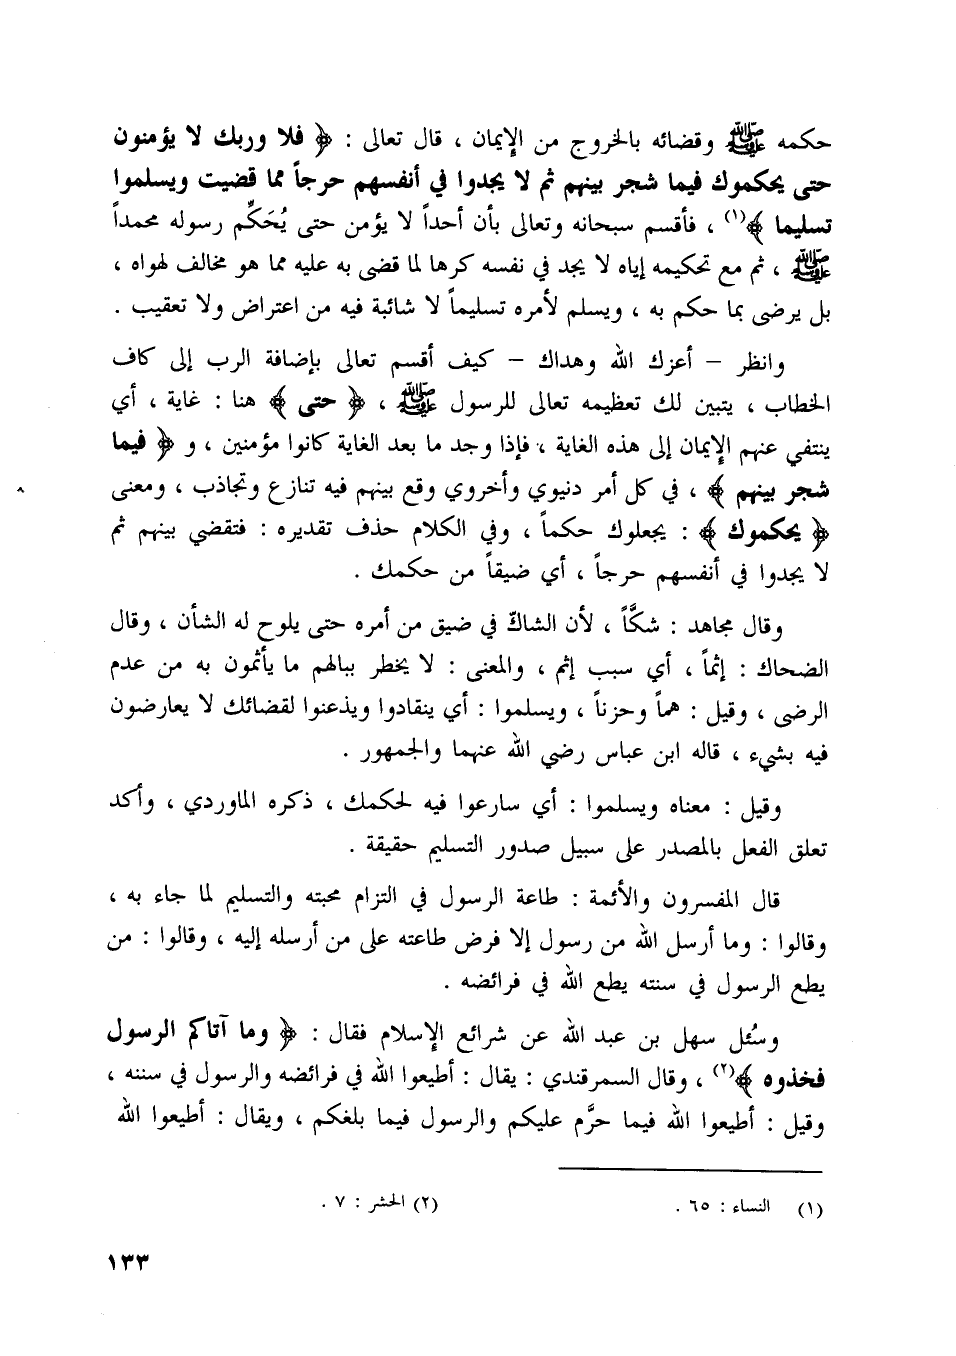 حكمه ﷺ وقضائه بالخروج من الإيمان ، قال تعالى : ﴿ فلا وربك لا يؤمنون
حتى يحكموك فيما شجر بينهم ثم لا يجدوا في أنفسهم حرجاً مما قضيت ويسلموا
تسليما ﴾(١) ، فأقسم سبحانه وتعالى بأن أحداً لا يؤمن حتى يُحَكِّم رسوله محمداً
ﷺ ، ثم مع تحكيمه إياه لا يجد في نفسه كرها لما قضى به عليه مما هو مخالف لهواه ،
بل يرضى بما حكم به ، ويسلم لأمره تسليماً لا شائبة فيه من اعتراض ولا تعقيب .
وانظر – أعزك الله وهداك – كيف أقسم تعالى بإضافة الرب إلى كاف
الخطاب ، يتبين لك تعظيمه تعالى للرسول ﷺ ، ﴿ حتى ﴾ هنا : غاية ، أي
ينتفي عنهم الإيمان إلى هذه الغاية ، فإذا وجد ما بعد الغاية كانوا مؤمنين ، و ﴿ فيما
شجر بينهم ﴾ ، في كل أمر دنيوي وأخروي وقع بينهم فيه تنازع وتجاذب ، ومعنى
﴿ يحكموك ﴾ : يجعلوك حكماً ، وفي الكلام حذف تقديره : فتقضي بينهم ثم
لا يجدوا في أنفسهم حرجاً ، أي ضيقاً من حكمك .
وقال مجاهد : شكَّاً ، لأن الشاكّ في ضيق من أمره حتى يلوح له الشأن ، وقال
الضحاك : إثماً ، أي سبب إثم ، والمعنى : لا يخطر ببالهم ما يأثمون به من عدم
الرضى ، وقيل : هماً وحزناً ، ويسلموا : أي ينقادوا ويذعنوا لقضائك لا يعارضون
فيه بشيء ، قاله ابن عباس رضي الله عنهما والجمهور .
وقيل : معناه ويسلموا : أي سارعوا فيه لحكمك ، ذكره الماوردي ، وأكد
تعلق الفعل بالمصدر على سبيل صدور التسليم حقيقة .
قال المفسرون والأئمة : طاعة الرسول في التزام محبته والتسليم لما جاء به ،
وقالوا : وما أرسل الله من رسول إلا فرض طاعته على من أرسله إليه ، وقالوا : من
يطع الرسول في سنته يطع الله في فرائضه .
وسُئل سهل بن عبد الله عن شرائع الإسلام فقال : ﴿ وما آتاكم الرسول
فخذوه ﴾(٢) ، وقال السمرقندي : يقال : أطيعوا الله في فرائضه والرسول في سننه ،
وقيل : أطيعوا الله فيما حرَّم عليكم والرسول فيما بلغكم ، ويقال : أطيعوا الله
(١) النساء : ٦٥ . (٢) الحشر : ٧ .
١٣٣